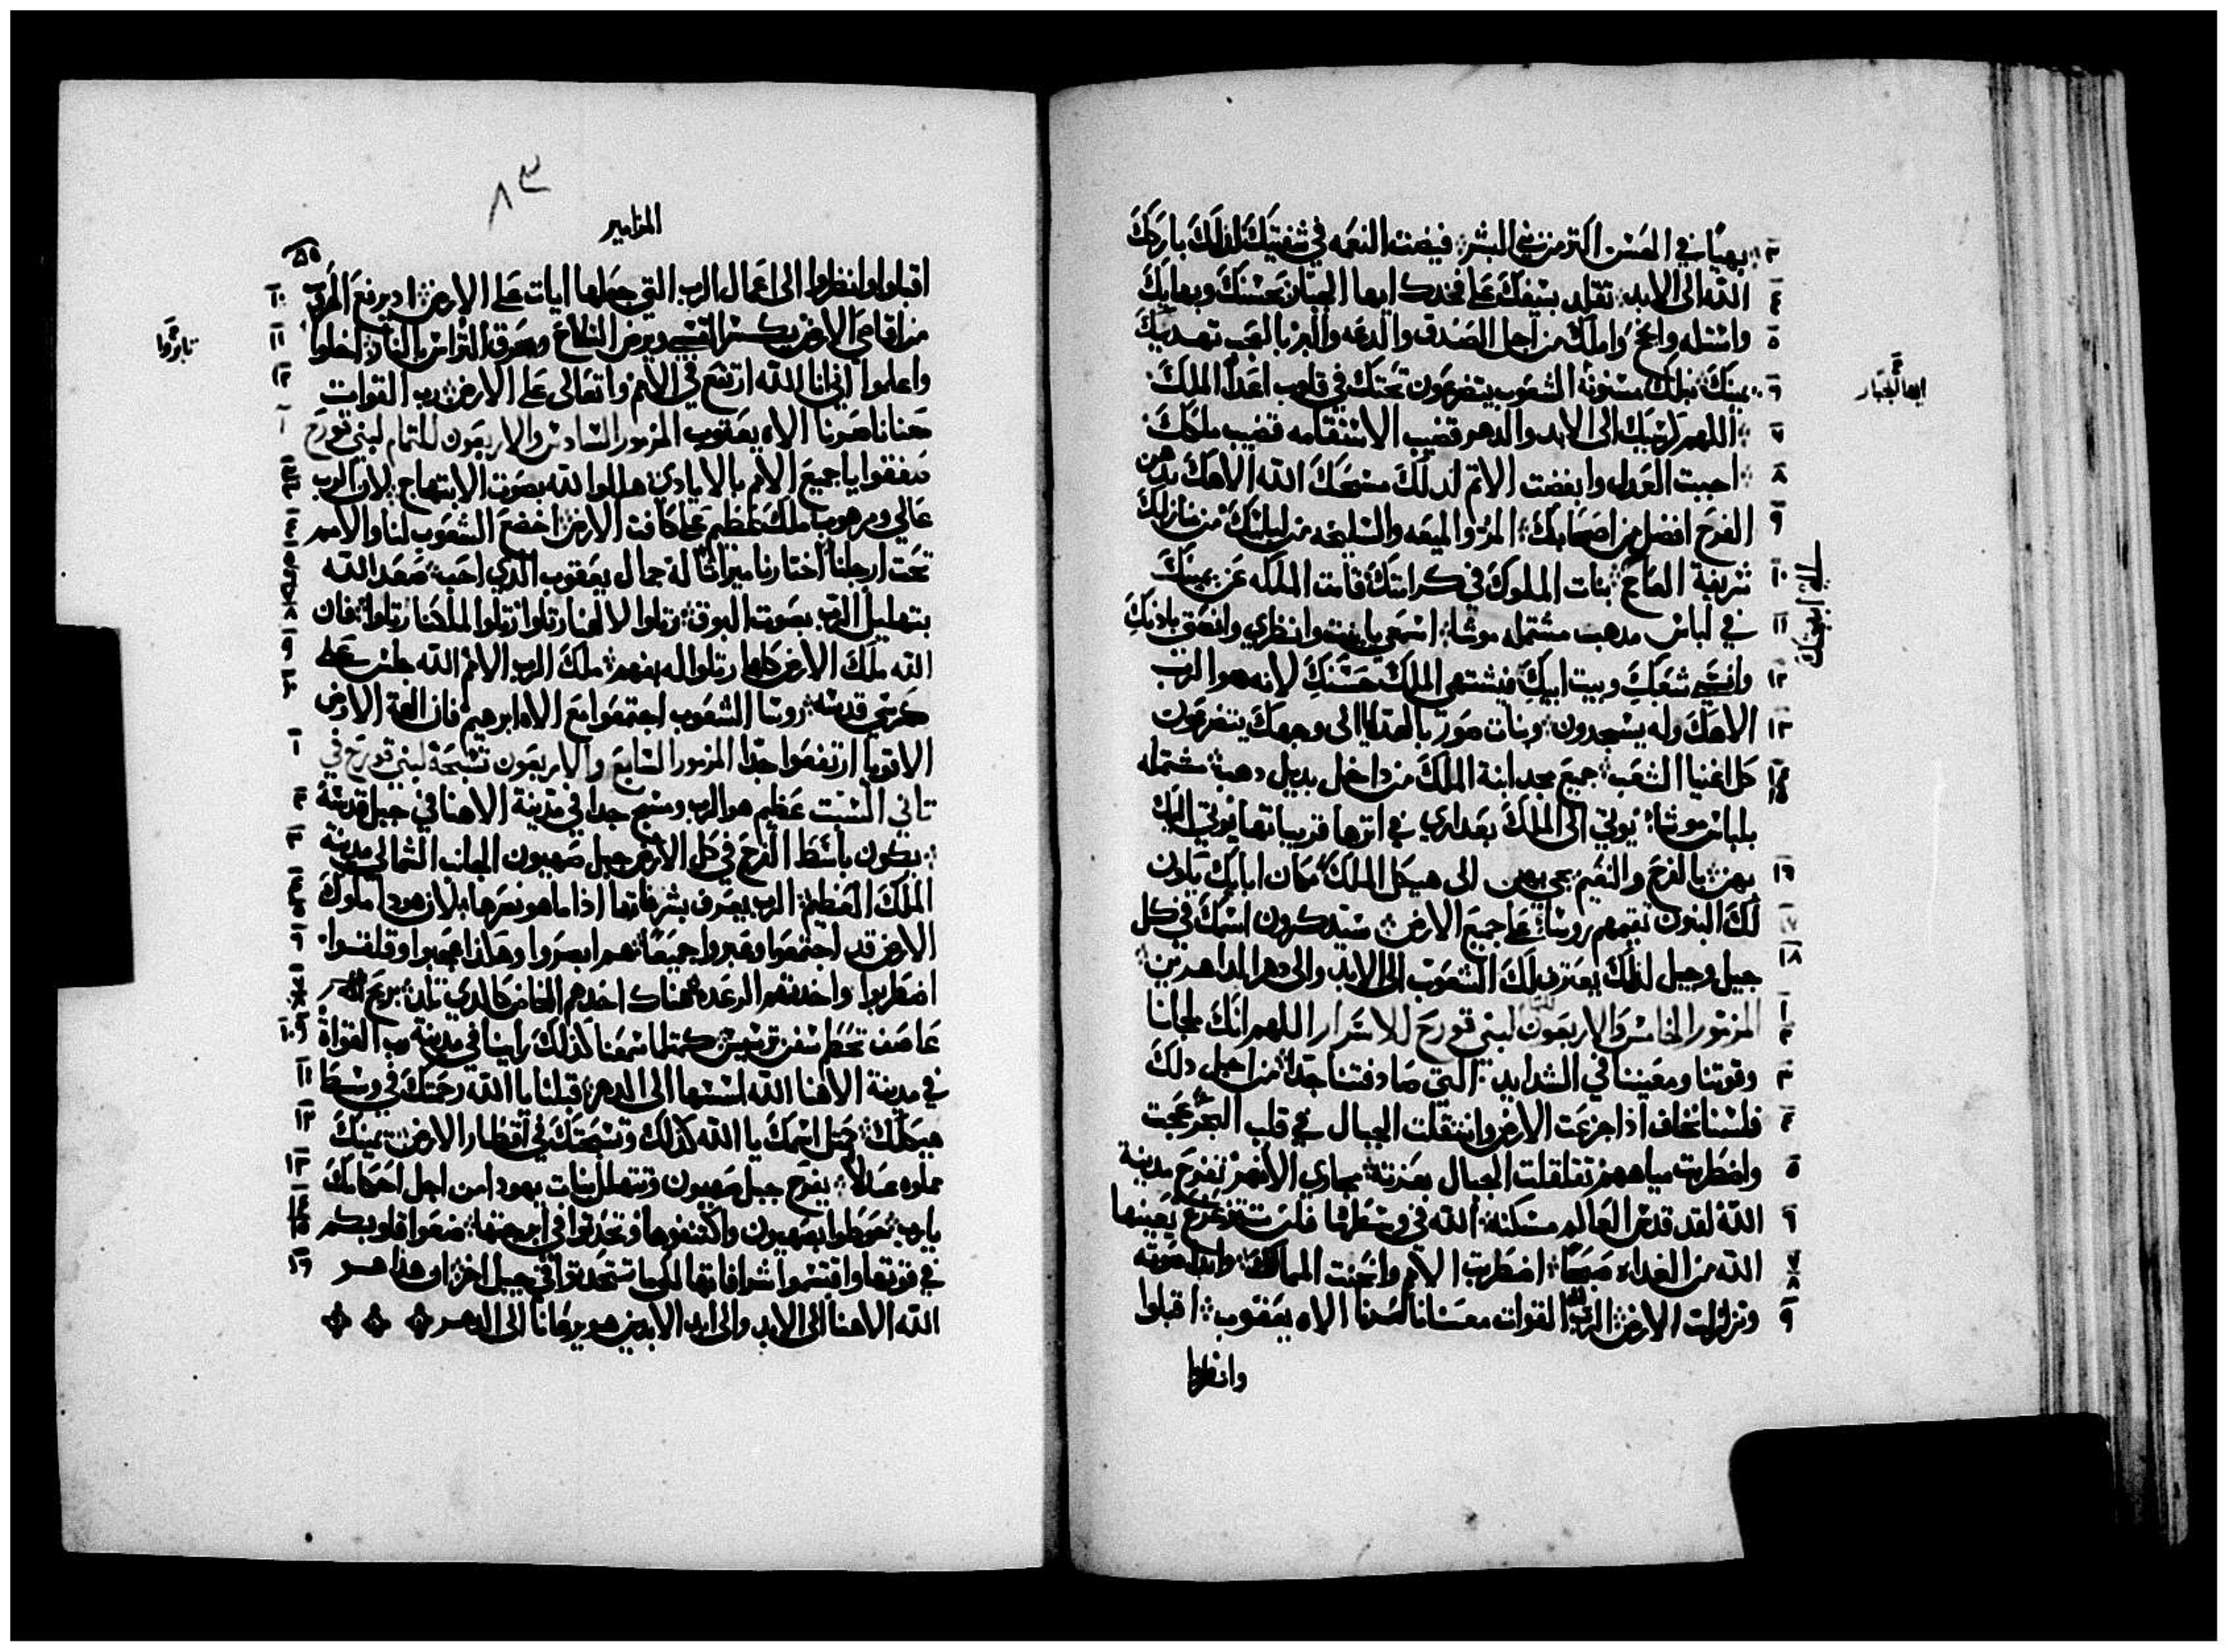 بهيًا في الحسن اكثر من بني البشر فيضت النعمه في شفتيك لذلك باركك
الله الى الابد تقلد بسيفك على فخدك ايها الجبار بحسنك وبهايك
واستله وانجح واملك من اجل الصدق والدعه والبر بالعجب تهديك
يمينك نبلك مسنونة الشعوب يتضرعون تحتك في قلوب اعدا الملك
اللهم كرسيك الى الابد والدهر قضيب الاستقامه قضيب ملكك
احببت العدل وابغضت الاثم لذلك مسحك الله الاهك بدهن
الفرح افضل من اصحابك المر والميعه والسليخه من لبانك من منازلك
شريفة العاج بنات الملوك في كرامتك قامت الملكه عن يمينك
في لباس مدهب مشتمله موشا اسمعي يا بنت وانظري وانصتي باذنكِ
وانسي شعبكِ وبيت ابيكِ فيشتهي الملك حسنكِ لانه هو الرب
الاهك وله يسجدون وبنات صور بالهدايا الى وجهك يتضرعون
كل اغنيا الشعب جميع مجد ابنة الملك من داخل بديل دهب مشتمله
بلباس موشا يوتي الى الملك بعدارى في اترها قريباتها يوتي اليك
بهن بالفرح والنعيم يجي بهن الى هيكل الملك مكان ابايك يكون
لك البنون تقيمهم روسًا على جميع الارض سيذكرون اسمك في كل
جيل وجيل لذلك يعترف لك الشعوب الى الابد والى دهر الداهرين
المزمور الخامس والاربعون لبني قورح للاسرار اللهم انك ملجانا
وقوتنا ومعيننا في الشدايد التي صادفتنا جدًا من اجل دلك
فلسنا نخاف اذا جزعت الارض وانتقلت الجبال في قلب البحر عجت
واضطربت مياههم تقلقلت الجبال بعزته مجاري الانهر تفرح مدينة
الله لقد قدس العالي مسكنه الله في وسطها فلن تتزعزع يعينها
الله من الغداه صبحًا اضطربت الامم وانحنت الممالك وابدا صوته
وتزلزلت الارض الرب اله القوات معنا ناصرنا الاه يعقوب اقبلوا
وانظروا
ايها الجبار
٨٣
المزامير
اقبلوا وانظروا الى اعمال الرب التي جعلها ايات على الارض اد يرفع الحروب
من اقاصي الارض يكسر القسي ويرض السلاح ويحرق التراس بالنار
واعلموا اني انا الله ارتفع في الامم واتعالى على الارض رب القوات
معنا ناصرنا الاه يعقوب المزمور السادس والاربعون للتمام لبني قورح
صفقوا يا جميع الامم بالايادي هللوا لله بصوت الابتهاج لان الرب
عالي ومرهوب ملك عظيم على كافت الارض اخضع الشعوب لنا والامم
تحت ارجلنا اختارنا ميراثًا له جمال يعقوب الذي احب صعد الله
بتهليل الرب بصوت البوق رتلوا لالهنا رتلوا رتلوا لملكنا رتلوا فان
الله ملك الارض كلها رتلوا له بفهم ملك الرب الامم الله جلس على
كرسي قدسه روسا الشعوب اجتمعوا مع الاه ابرهيم فان اعزة الارض
الاقويا ارتفعوا جدًا المزمور السابع والاربعون تسبحة لبني قورح في
تاني السبت عظيم هو الرب ومسبح جدا في مدينة الاهنا في جبل قدسه
يكون باسط الفرح في كل الارض جبل صهيون الجانب الشمالي مدينة
الملك العظيم الرب يعرف بشرفاتها اذا ما هو نصرها لان هودا ملوك
الارض قد اجتمعوا وعبروا جميعًا هم ابصروا وهكذا عجبوا وقلقوا
اضطربوا واخدتهم الرعده هناك اخدهم المخاض كالدي تلد بريح
عاصف تحطم سفن ترسيس كمتلما سمعنا كذلك راينا في مدينة رب القواة
في مدينة الاهنا الله اسسها الى الدهر قبلنا يا الله رحمتك في وسط
هيكلك متل اسمك يا الله كذلك تسبحتك في اقطار الارض يمينك
مملوه عدلًا يفرح جبل صهيون وتتهلل بنات يهودا من اجل احكامك
يا رب حوطوا بصهيون واكتنفوها وتحدثوا في ابرجتها ضعوا قلوبكم
في قوتها واقتسموا شرافاتها لكيما تتحدثوا في جيل اخر ان هذا هو
الله الاهنا الى الابد والى ابد الابدين هو يرعانا الى الدهر